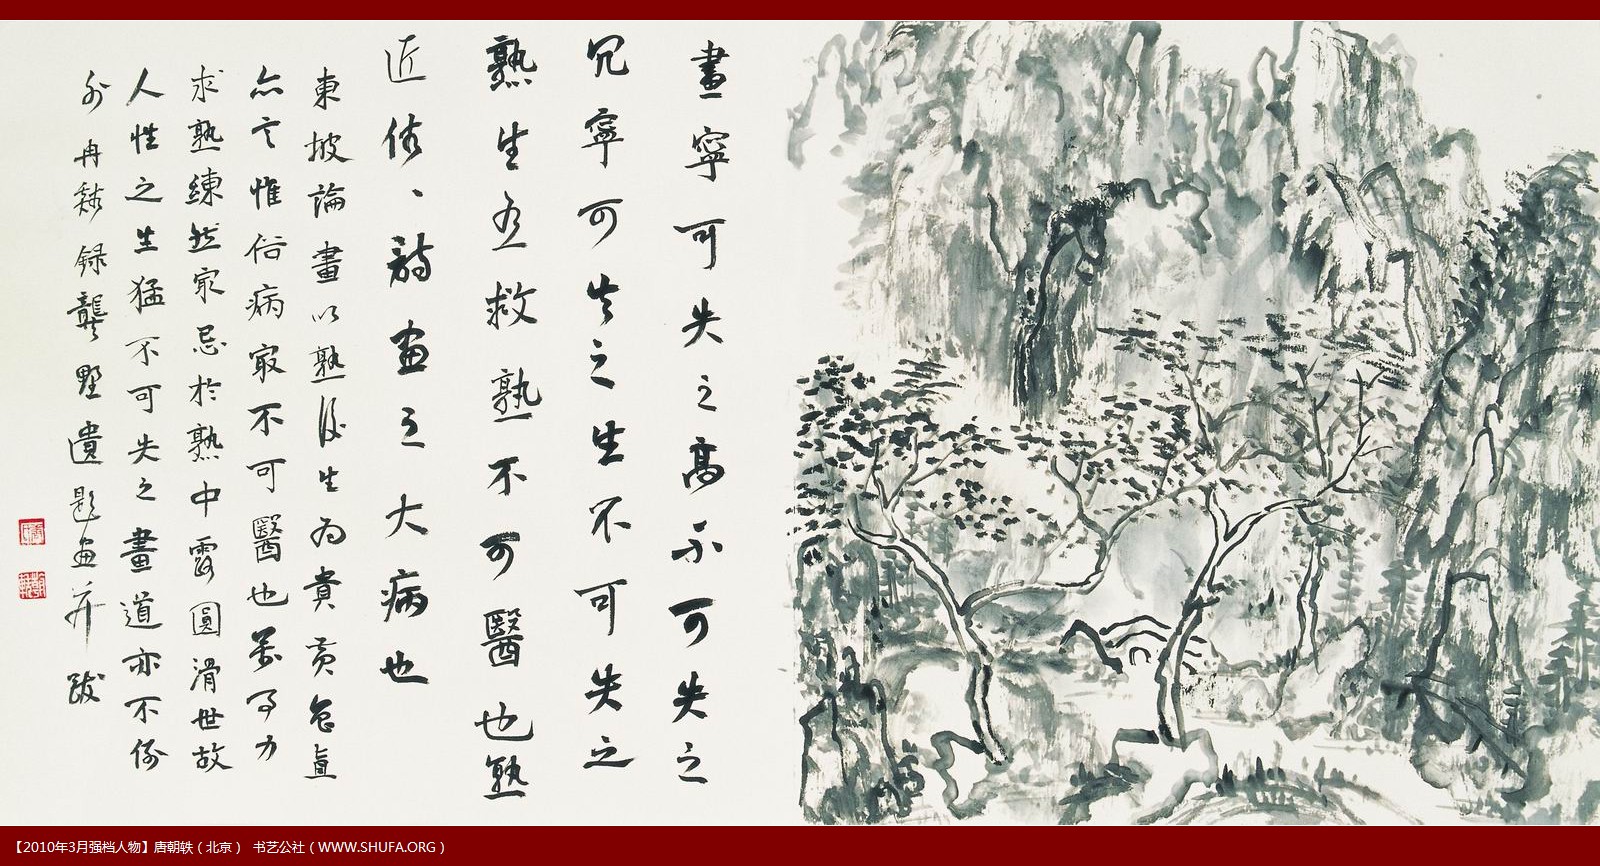 畫寧可失之高不可失之
冗寧可失之生不可失之
熟生救熟不可醫也熟
近俗、詩畫之大病也
東坡論畫以熟後生為貴黃魯直
亦言惟俗病最不可醫也萬事力
求熟練然最忌於熟中露圓滑世故
人性之生猛不可失之畫道亦不例
外 録龔野遺題畫并跋
【2010年3月强档人物】唐朝轶（北京） 书艺公社（WWW.SHUFA.ORG）